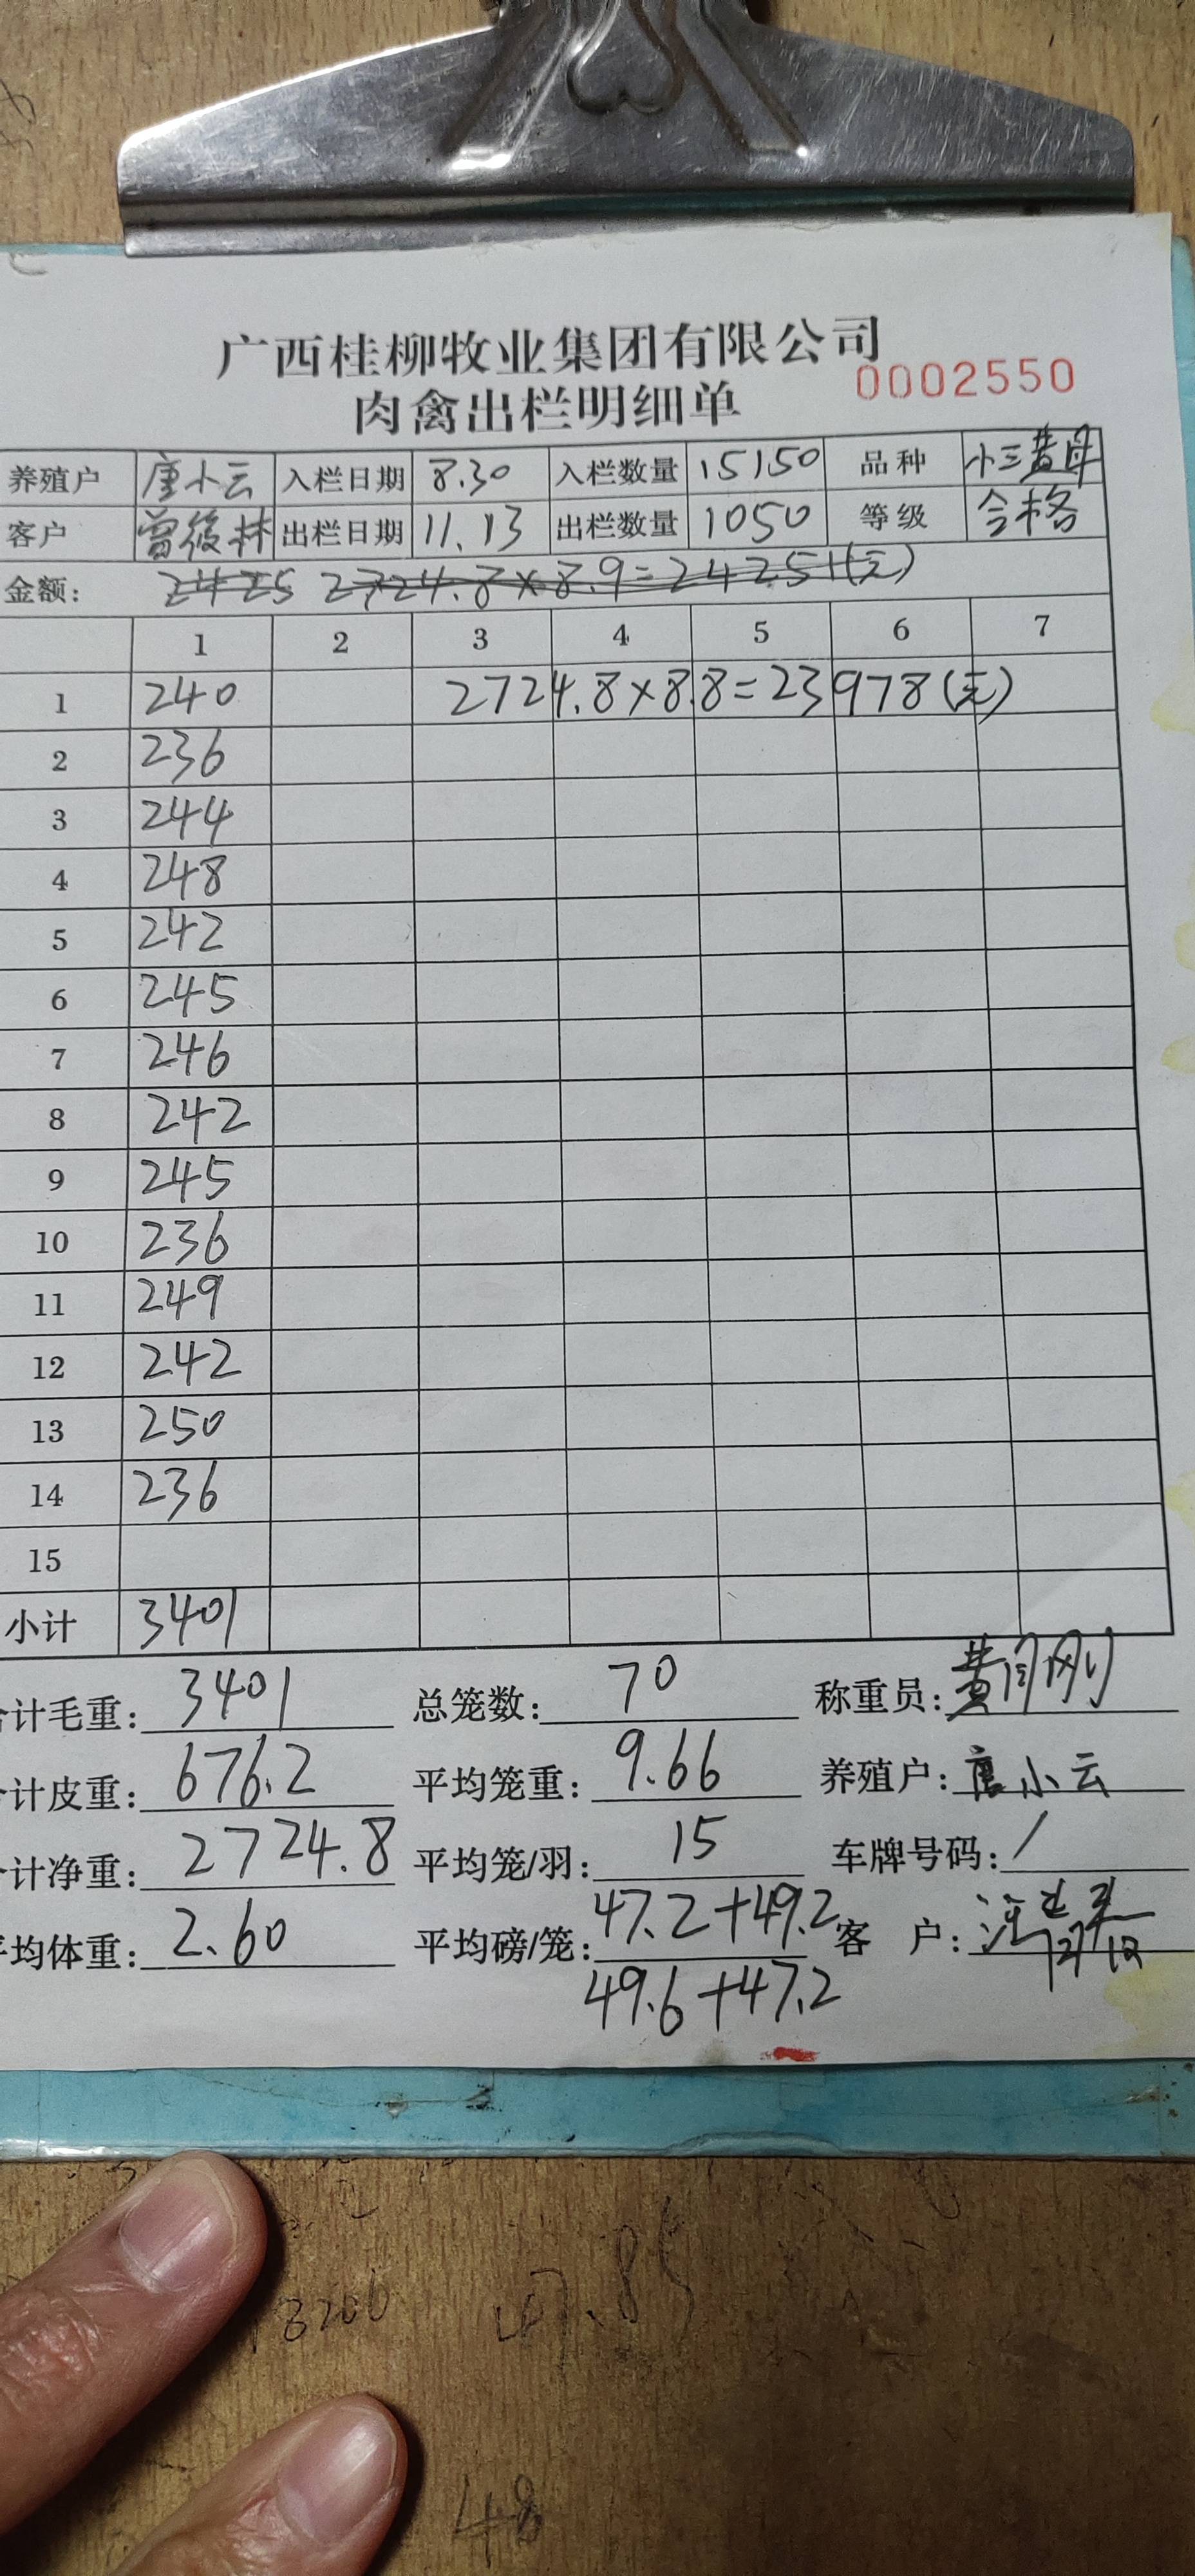 广西桂柳牧业集团有限公司
肉禽出栏明细单 0002550
养殖户 唐小云 入栏日期 8.30 入栏数量 15150 品种 小三黄母
客户 曾俊林 出栏日期 11.13 出栏数量 1050 等级 合格
金额: 2425 2724.8×8.9=24251(元)
1 2 3 4 5 6 7
1 240 2724.8×8.8=23978(元)
2 236
3 244
4 248
5 242
6 245
7 246
8 242
9 245
10 236
11 249
12 242
13 250
14 236
15
小计 3401
计毛重: 3401 总笼数: 70 称重员:
计皮重: 676.2 平均笼重: 9.66 养殖户: 唐小云
计净重: 2724.8 平均笼/羽: 15 车牌号码: /
均体重: 2.60 平均磅/笼: 47.2+49.2 客 户:
49.6+47.2
3200
48